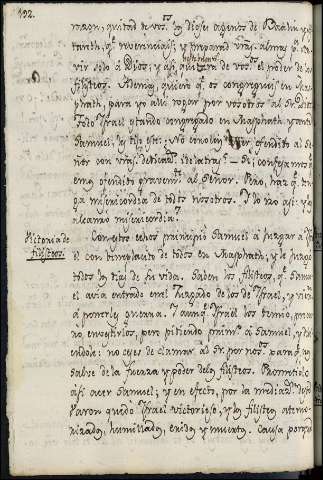 132.
razon, quitad de vos.os los Dioses agenos de Baalin y
taroth, q.e reverenciais, y preparad vras. almas p.a
vir solo à Dios, y asi quitara de vos.os el poder de los
filisteos. Ademas, quiero q.e os congregueis en Mas
phath, para yo alli rogar por vosotros al S.r
Todo Israel estando congregado en Masphath
Samuel, les dijo: No conoceis haver ofendido al Se
ñor con vras. idolatras? Si confesamos q.e
emos ofendido gravem.te al Señor. Pero, haz q.e ten
ga misericordia de todos nosotros. I lo izo asi: y
alcanzo misericordia.
Vitoria de filisteos.
Con estos echos principiò Samuel à juzgar à
el con beneplacito de todos en Masphath, y le juzgò
todos los dias de su vida. Saben los filisteos, q.e Samu
el avia entrado en el juzgado de los de Israel, y vienen
à ponerles guerra. I aunq.e Israel los temiò,
ron envestirlos, pero pidiendo prim.o à Samuel, y
endole: no ceses de clamar al S.r por nos.os para q.e
salve de la fuerza y poder de los filisteos. Prometiolo
asi acer Samuel; y en efecto, por la mediac.n
varon quedò Israel victorioso, y los filisteos atemo
rizados, humillados, eridos y muertos. Causa por